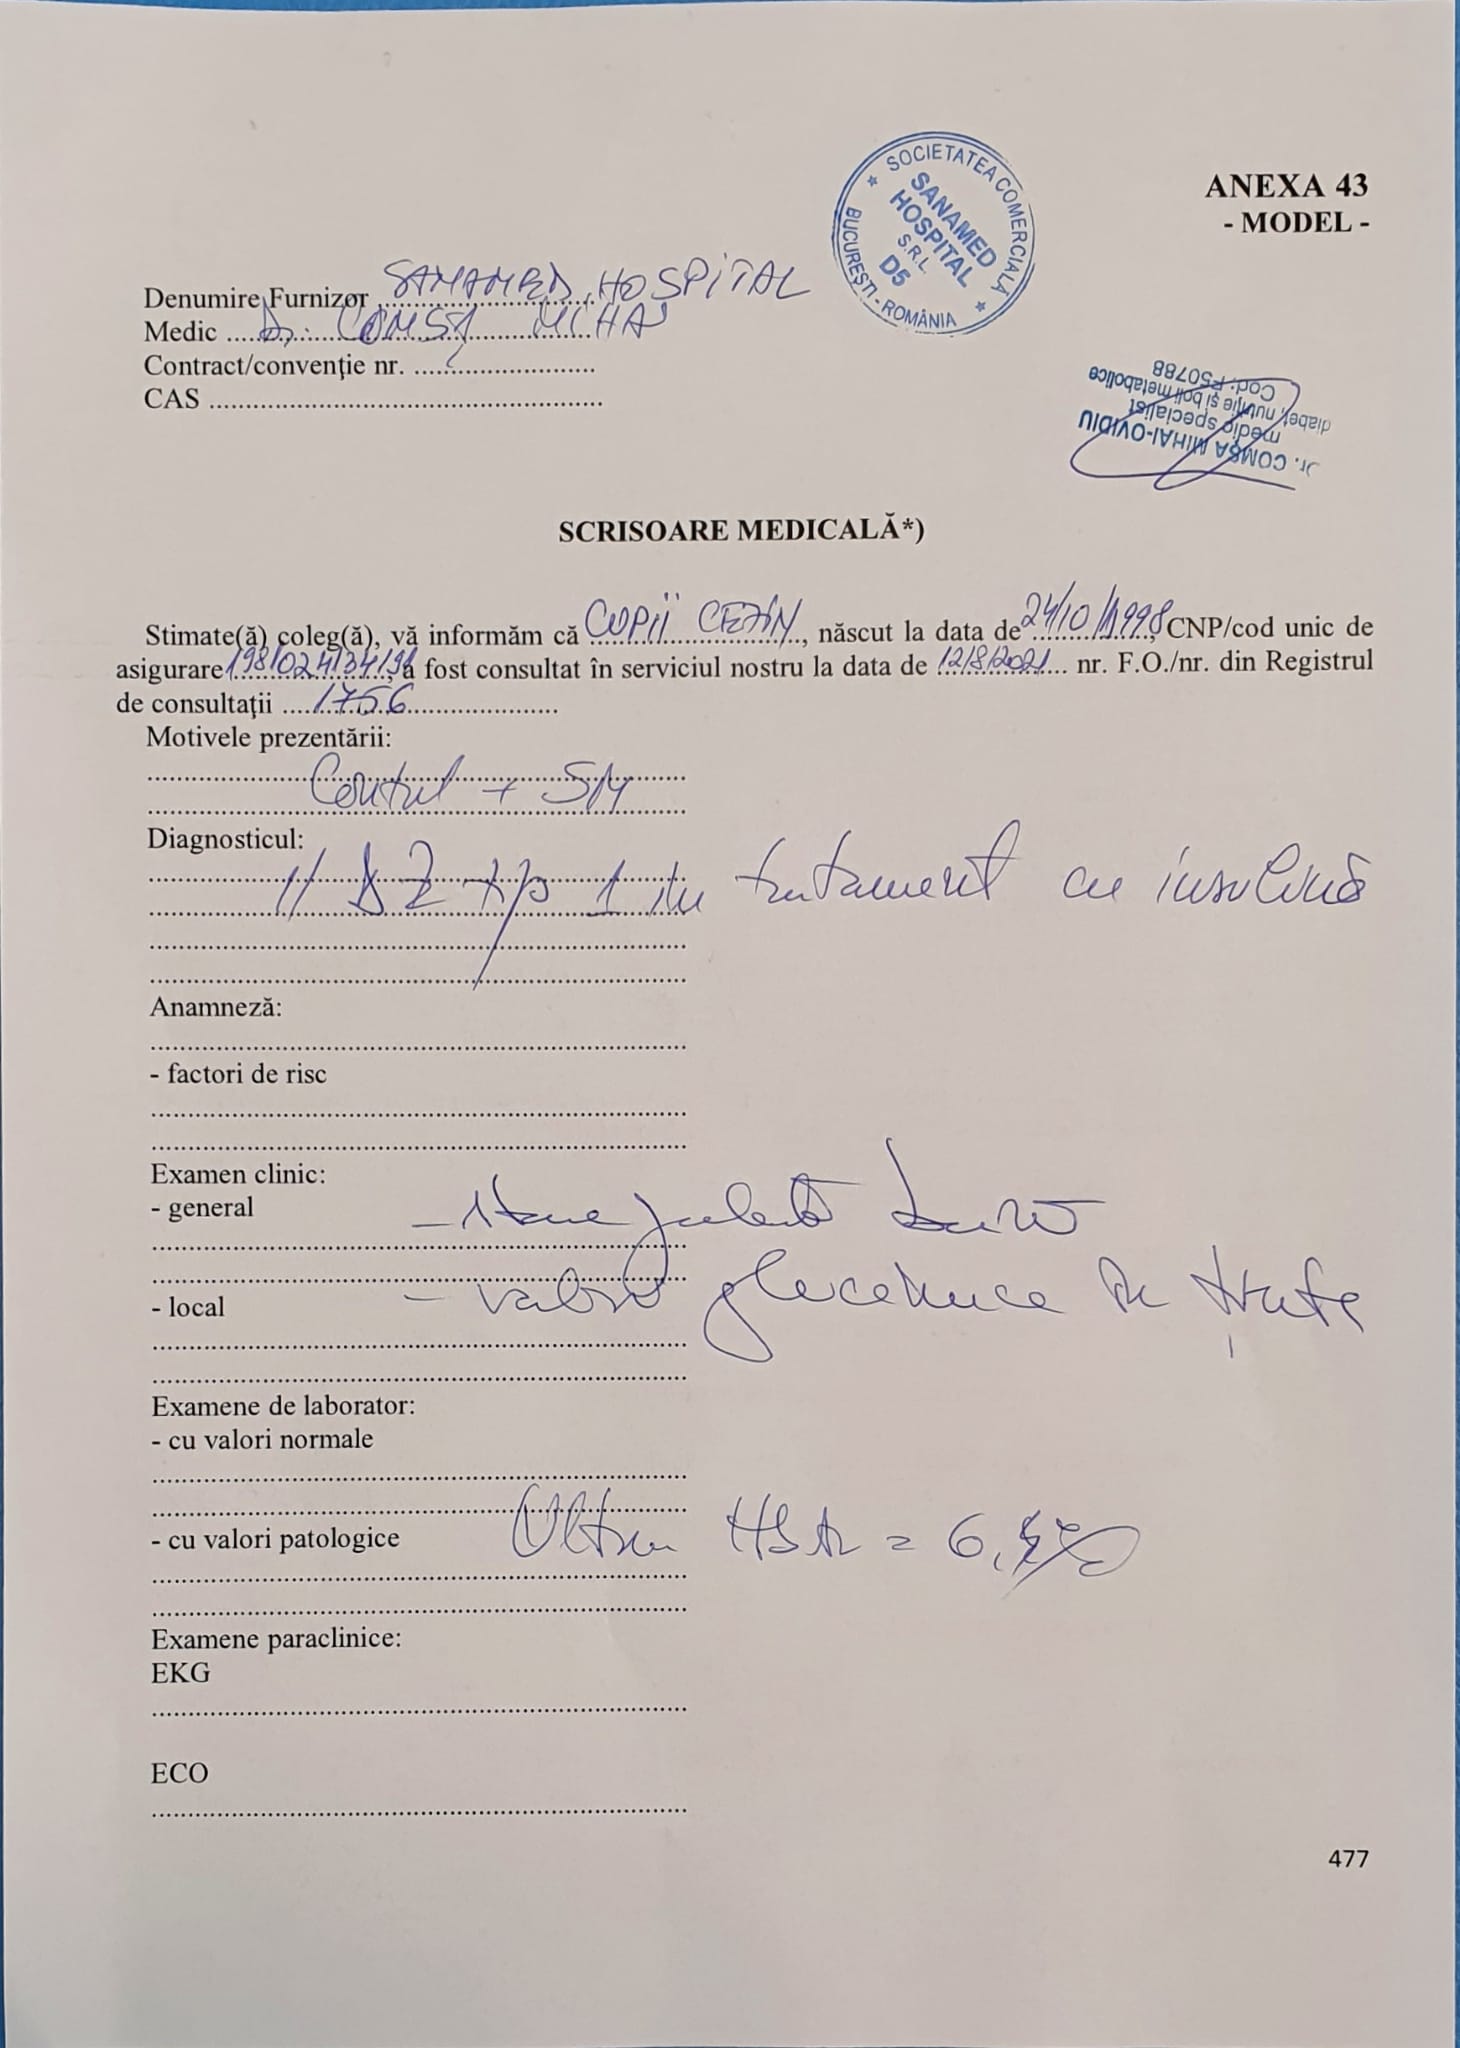 SOCIETATEA COMERCIALĂ
SANAMED
HOSPITAL
S.R.L.
D5
BUCUREŞTI - ROMÂNIA
ANEXA 43
- MODEL -
Denumire Furnizor SANAMED HOSPITAL
Medic Dr. COMȘA MIHAI
Contract/convenţie nr. ............................
CAS ............................................................
Dr. COMŞA MIHAI-OVIDIU
medic specialist
diabet, nutriţie şi boli metabolice
Cod: F50788
SCRISOARE MEDICALĂ*)
Stimate(ă) coleg(ă), vă informăm că COPII , născut la data de 24/10/1998, CNP/cod unic de
asigurare a fost consultat în serviciul nostru la data de 12/8/2021 nr. F.O./nr. din Registrul
de consultaţii 1756
Motivele prezentării:
Control + SM
Diagnosticul:
1/ DZ tip 1 în tratament cu insulină
Anamneză:
- factori de risc
Examen clinic:
- general - Stare generală bună
- local - valori glicemice în ținte
Examene de laborator:
- cu valori normale
- cu valori patologice Ultima = 6,
Examene paraclinice:
EKG
ECO
477